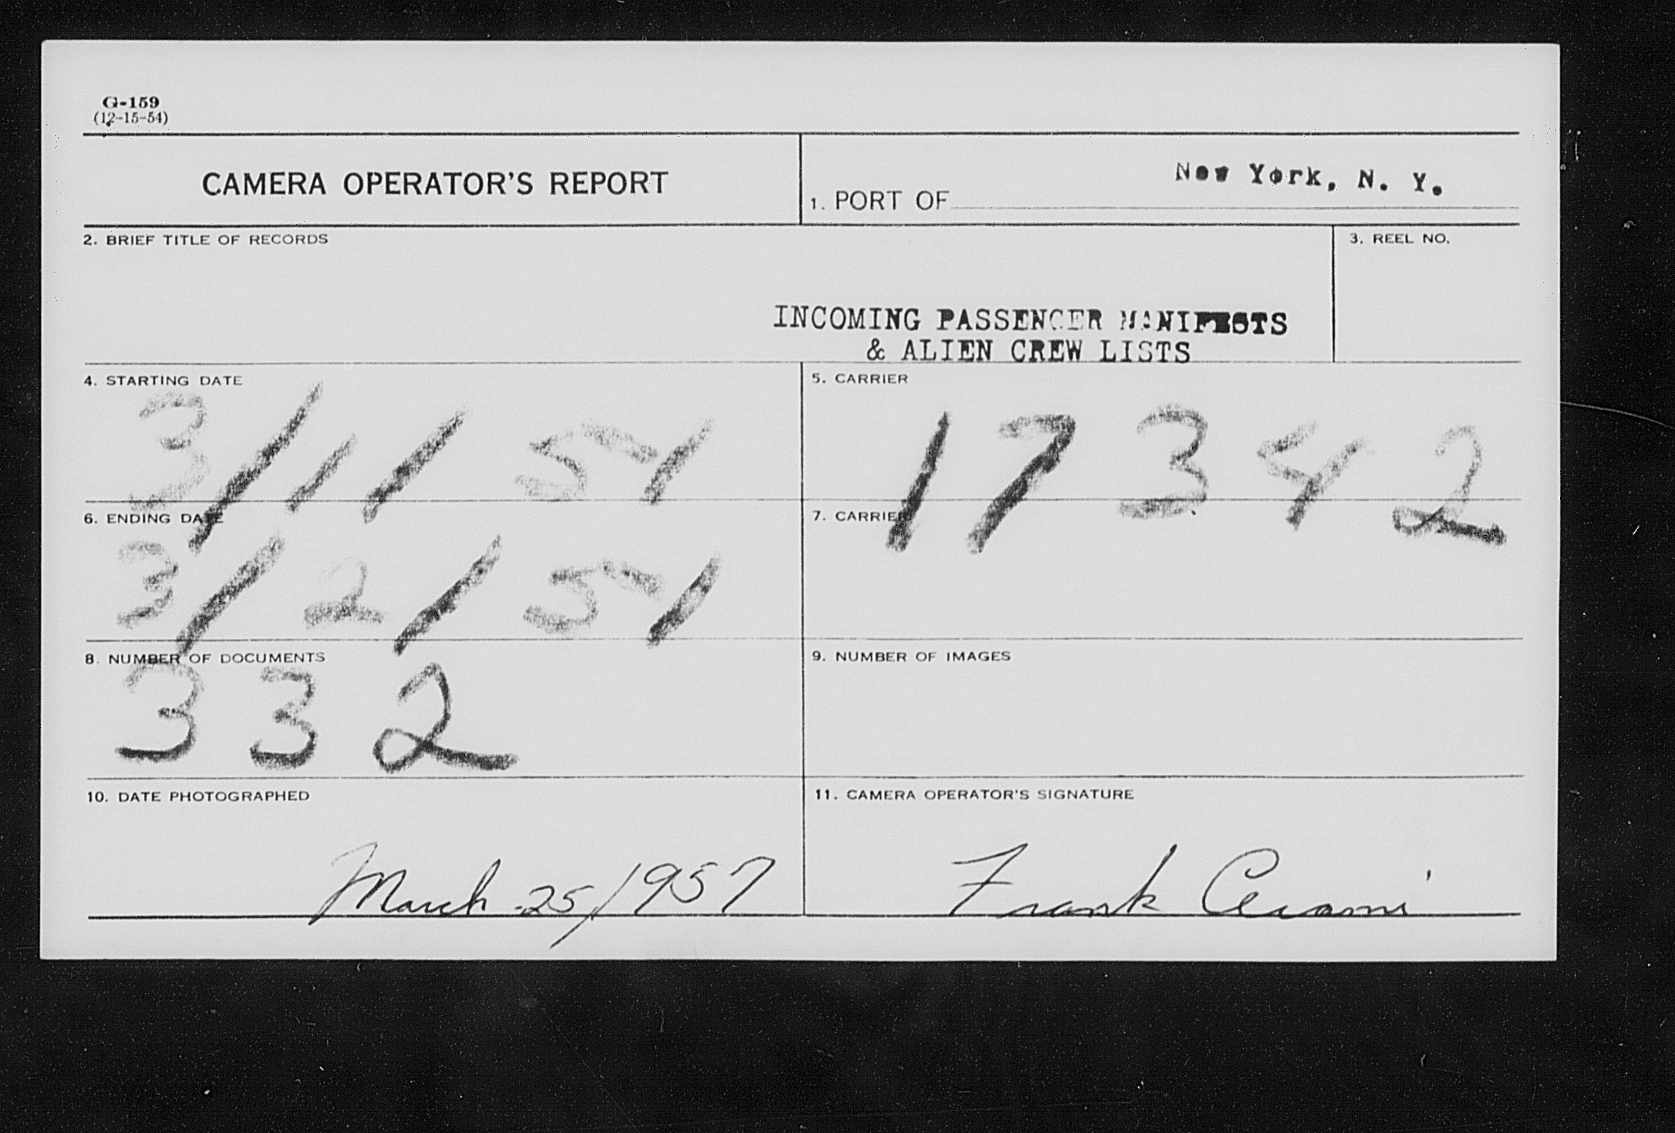 G-159
(12-15-54)
CAMERA OPERATOR'S REPORT
1. PORT OF New York, N. Y.
2. BRIEF TITLE OF RECORDS
3. REEL NO.
INCOMING PASSENGER MANIFESTS
& ALIEN CREW LISTS
4. STARTING DATE
3/1/54
5. CARRIER
17342
6. ENDING DATE
3/2/54
7. CARRIER
8. NUMBER OF DOCUMENTS
332
9. NUMBER OF IMAGES
10. DATE PHOTOGRAPHED
March 25, 1957
11. CAMERA OPERATOR'S SIGNATURE
Frank Cerami